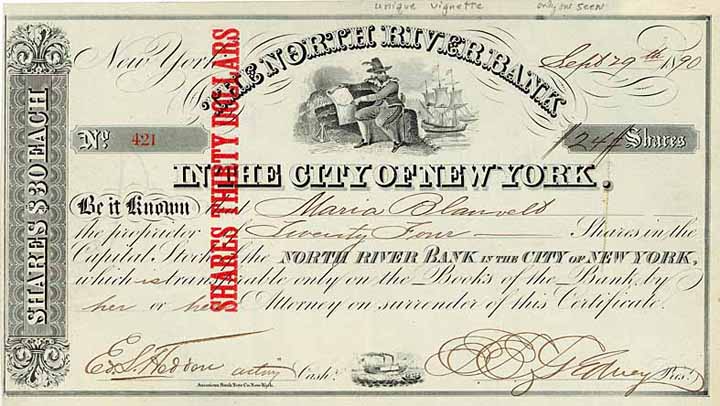 unique vignette only one seen
New York Sept 29th 1890
THE NORTH RIVER BANK
No. 421
24 Shares
IN THE CITY OF NEW YORK.
Be it Known that Maria Blauvelt
the proprietor of Twenty Four Shares in the
Capital Stock of the NORTH RIVER BANK IN THE CITY OF NEW YORK,
which is transferable only on the Books of the Bank, by
her or her Attorney on surrender of this Certificate.
acting Cash.
Pres.
American Bank Note Co. New York.
SHARES $30 EACH
SHARES THIRTY DOLLARS